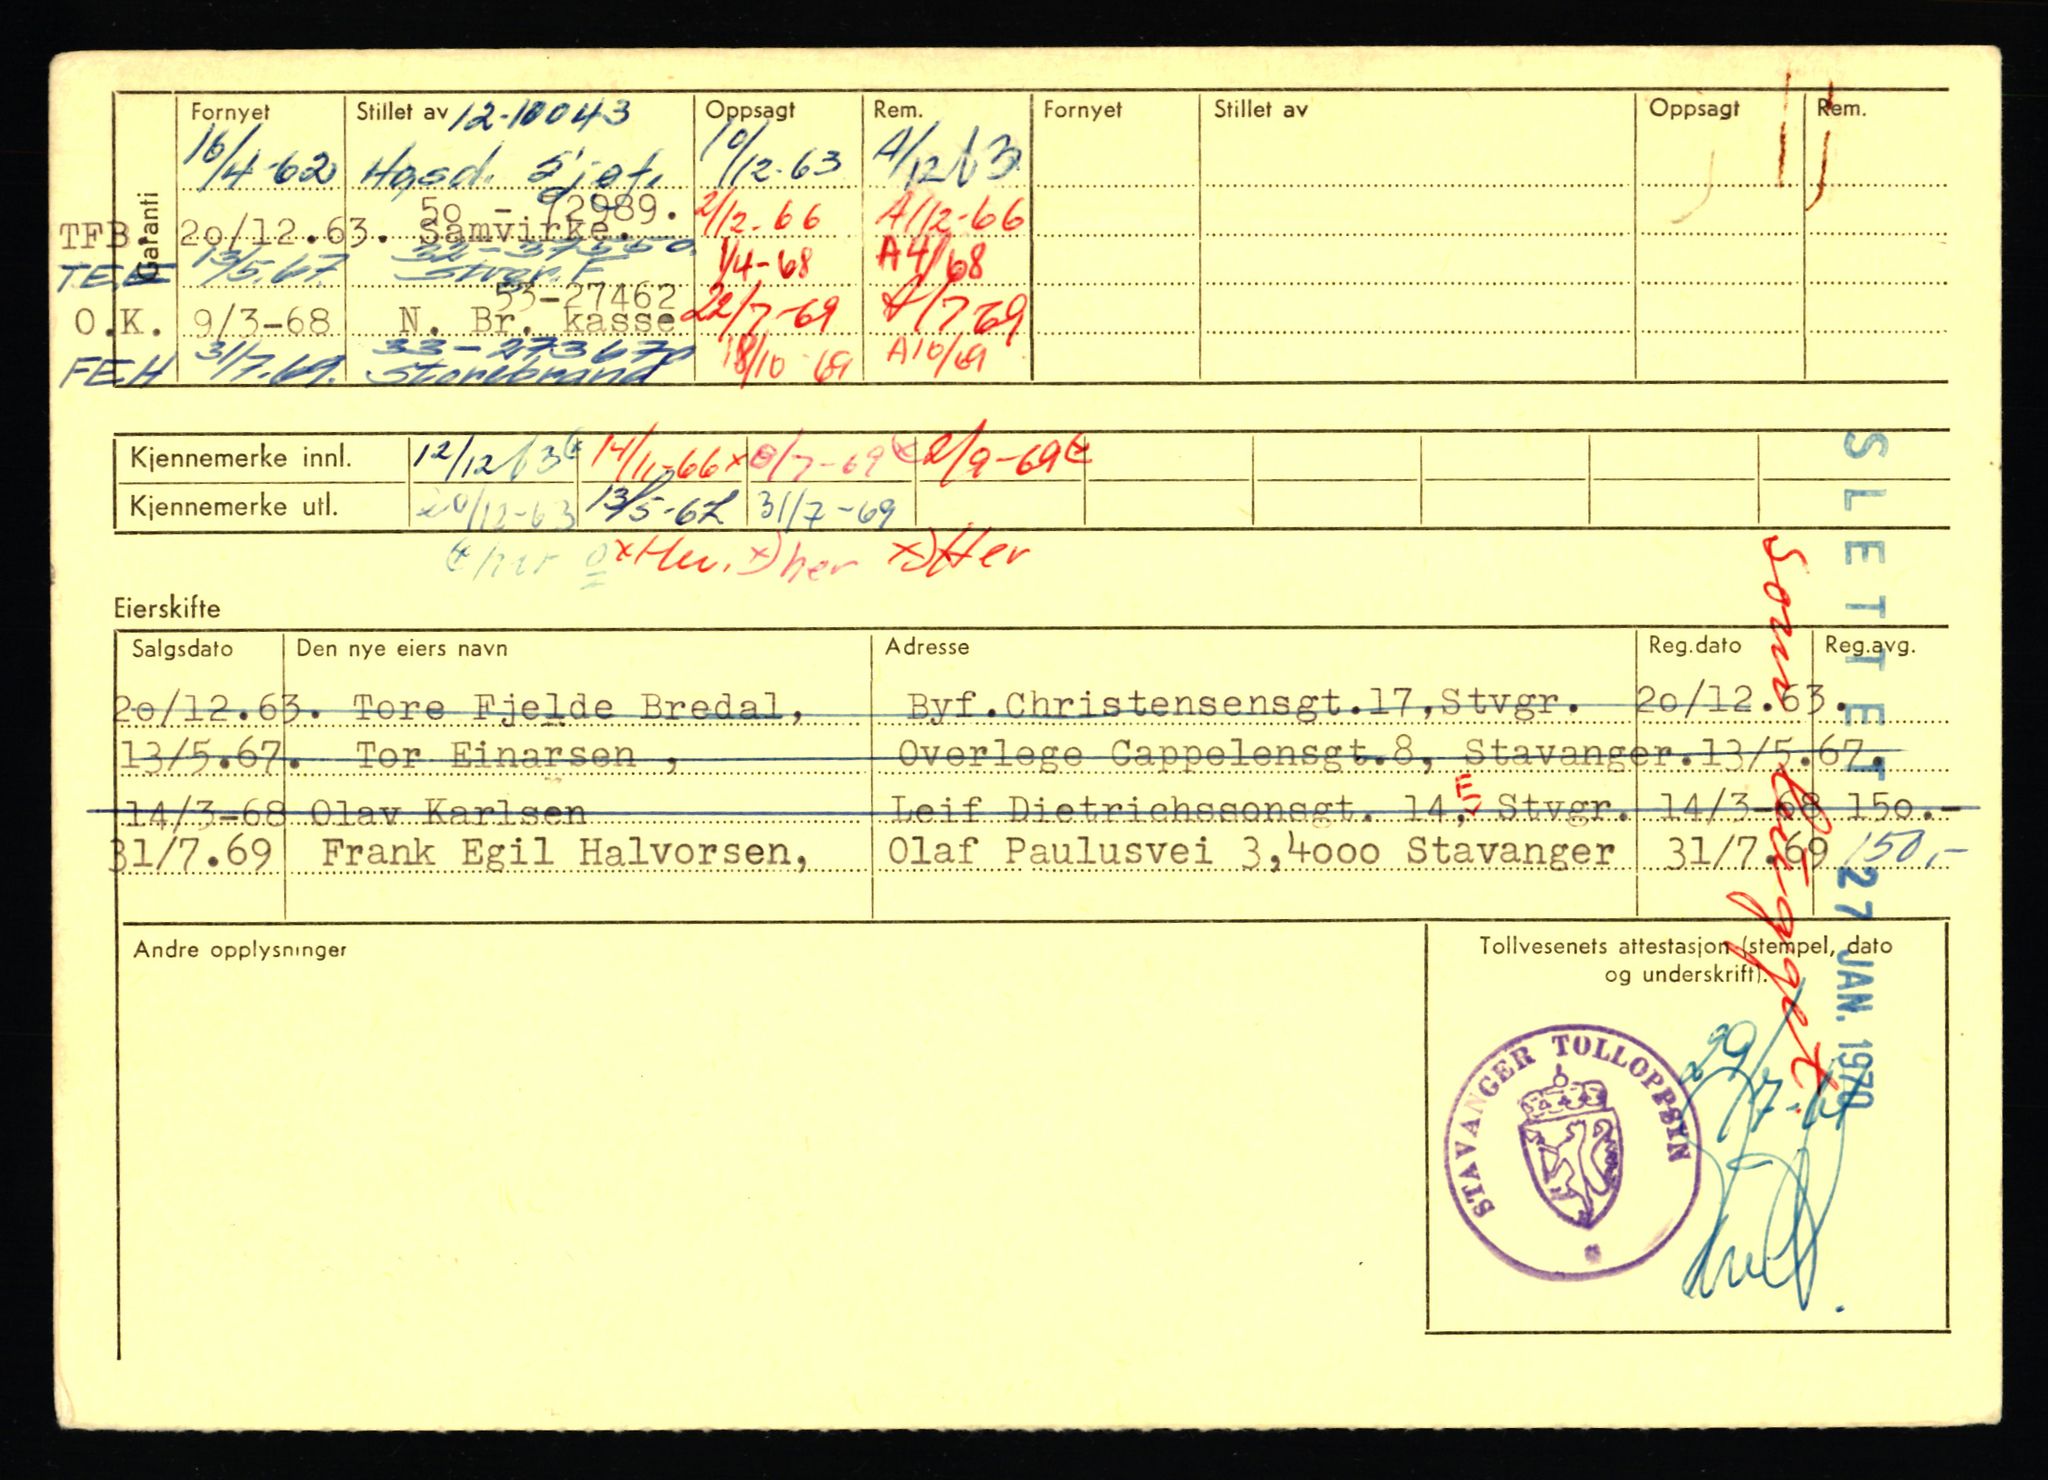 Garanti
Fornyet Stillet av 12-10043 Oppsagt Rem. Fornyet Stillet av Oppsagt Rem.
16/4-62 Hgsd. Sjøf. 10/12-63 A/12 63
50 - 72989.
TFB. 20/12.63. Samvirke. 2/12-66 A/12-66
32-37550
TEE 13/5.67. Stvgr. F 1/4-68 A4/68
53-27462
O.K. 9/3-68 N. Br. kasse 22/7-69 A/7 69
33-273670
FEH 31/7.69. Storebrand 18/10-69 A10/69
Kjennemerke innl. 12/12 63 14/11-66 x /7-69 2/9-69
Kjennemerke utl. 20/12-63 13/5-67 31/7-69
her x Her. x) her x) Her
Eierskifte
Salgsdato Den nye eiers navn Adresse Reg.dato Reg.avg.
20/12.63. Tore Fjelde Bredal, Byf.Christensensgt.17,Stvgr. 20/12.63.
13/5.67. Tor Einarsen , Overlege Cappelensgt.8, Stavanger. 13/5.67.
14/3-68 Olav Karlsen Leif Dietrichssonsgt. 14,E Stvgr. 14/3-68 150.-
31/7.69 Frank Egil Halvorsen, Olaf Paulusvei 3,4000 Stavanger 31/7.69 150,-
Andre opplysninger
Tollvesenets attestasjon (stempel, dato
og underskrift).
STAVANGER TOLLOPPSYN
29/7-69
SLETTET 27 JAN. 1970